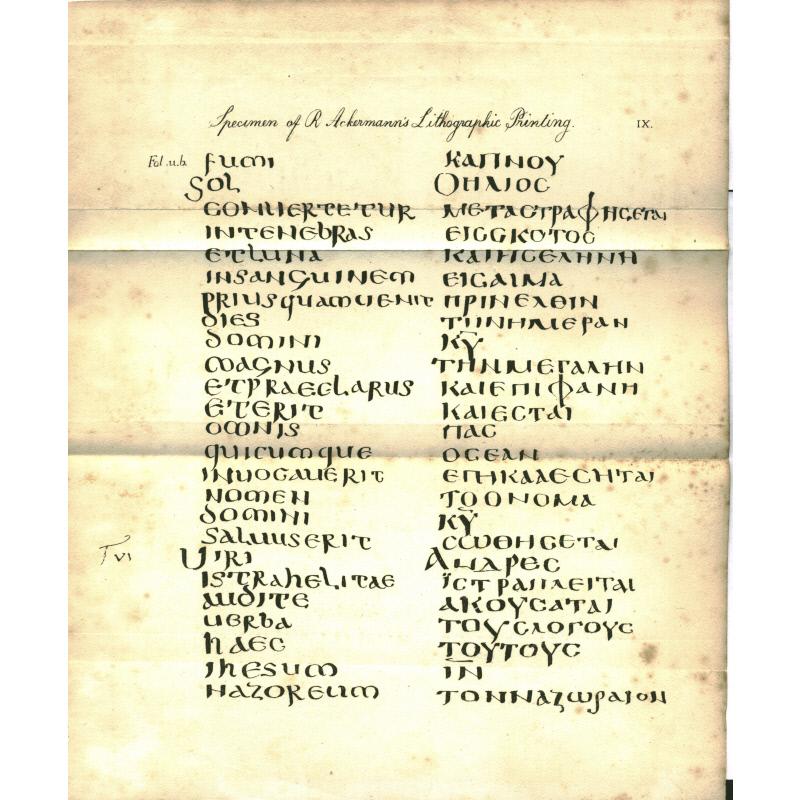 Specimen of R Ackermann's Lithographic Printing. IX.
Fol. 11. b. fumi ΚΑΠΝΟΥ
Sol ΟΗΛΙΟC
conuertetur ΜΕΤΑCΤΡΑΦΗCΕΤΑΙ
intenebras ΕΙCCΚΟΤΟC
etluna ΚΑΙΗCΕΛΗΝΗ
insanguinem ΕΙCΑΙΜΑ
priusquamuenit ΠΡΙΝΕΛΘΙΝ
dies ΤΗΝΗΜΕΡΑΝ
domini ΚΥ
magnus ΤΗΝΜΕΓΑΛΗΝ
etpraeclarus ΚΑΙΕΠΙΦΑΝΗ
eterit ΚΑΙΕCΤΑΙ
omnis ΠΑC
quicumque ΟCΕΑΝ
inuocauerit ΕΠΗΚΑΛΕCΗΤΑΙ
nomen ΤΟΟΝΟΜΑ
domini ΚΥ
saluuserit CΩΘΗCΕΤΑΙ
Uiri ΑΝΔΡΕC
istrahelitae ΪCΤΡΑΗΛΕΙΤΑΙ
audite ΑΚΟΥCΑΤΑΙ
uerba ΤΟΥCΛΟΓΟΥC
haec ΤΟΥΤΟΥC
ihesum ΙΝ
nazoreum ΤΟΝΝΑΖΩΡΑΙΟΝ